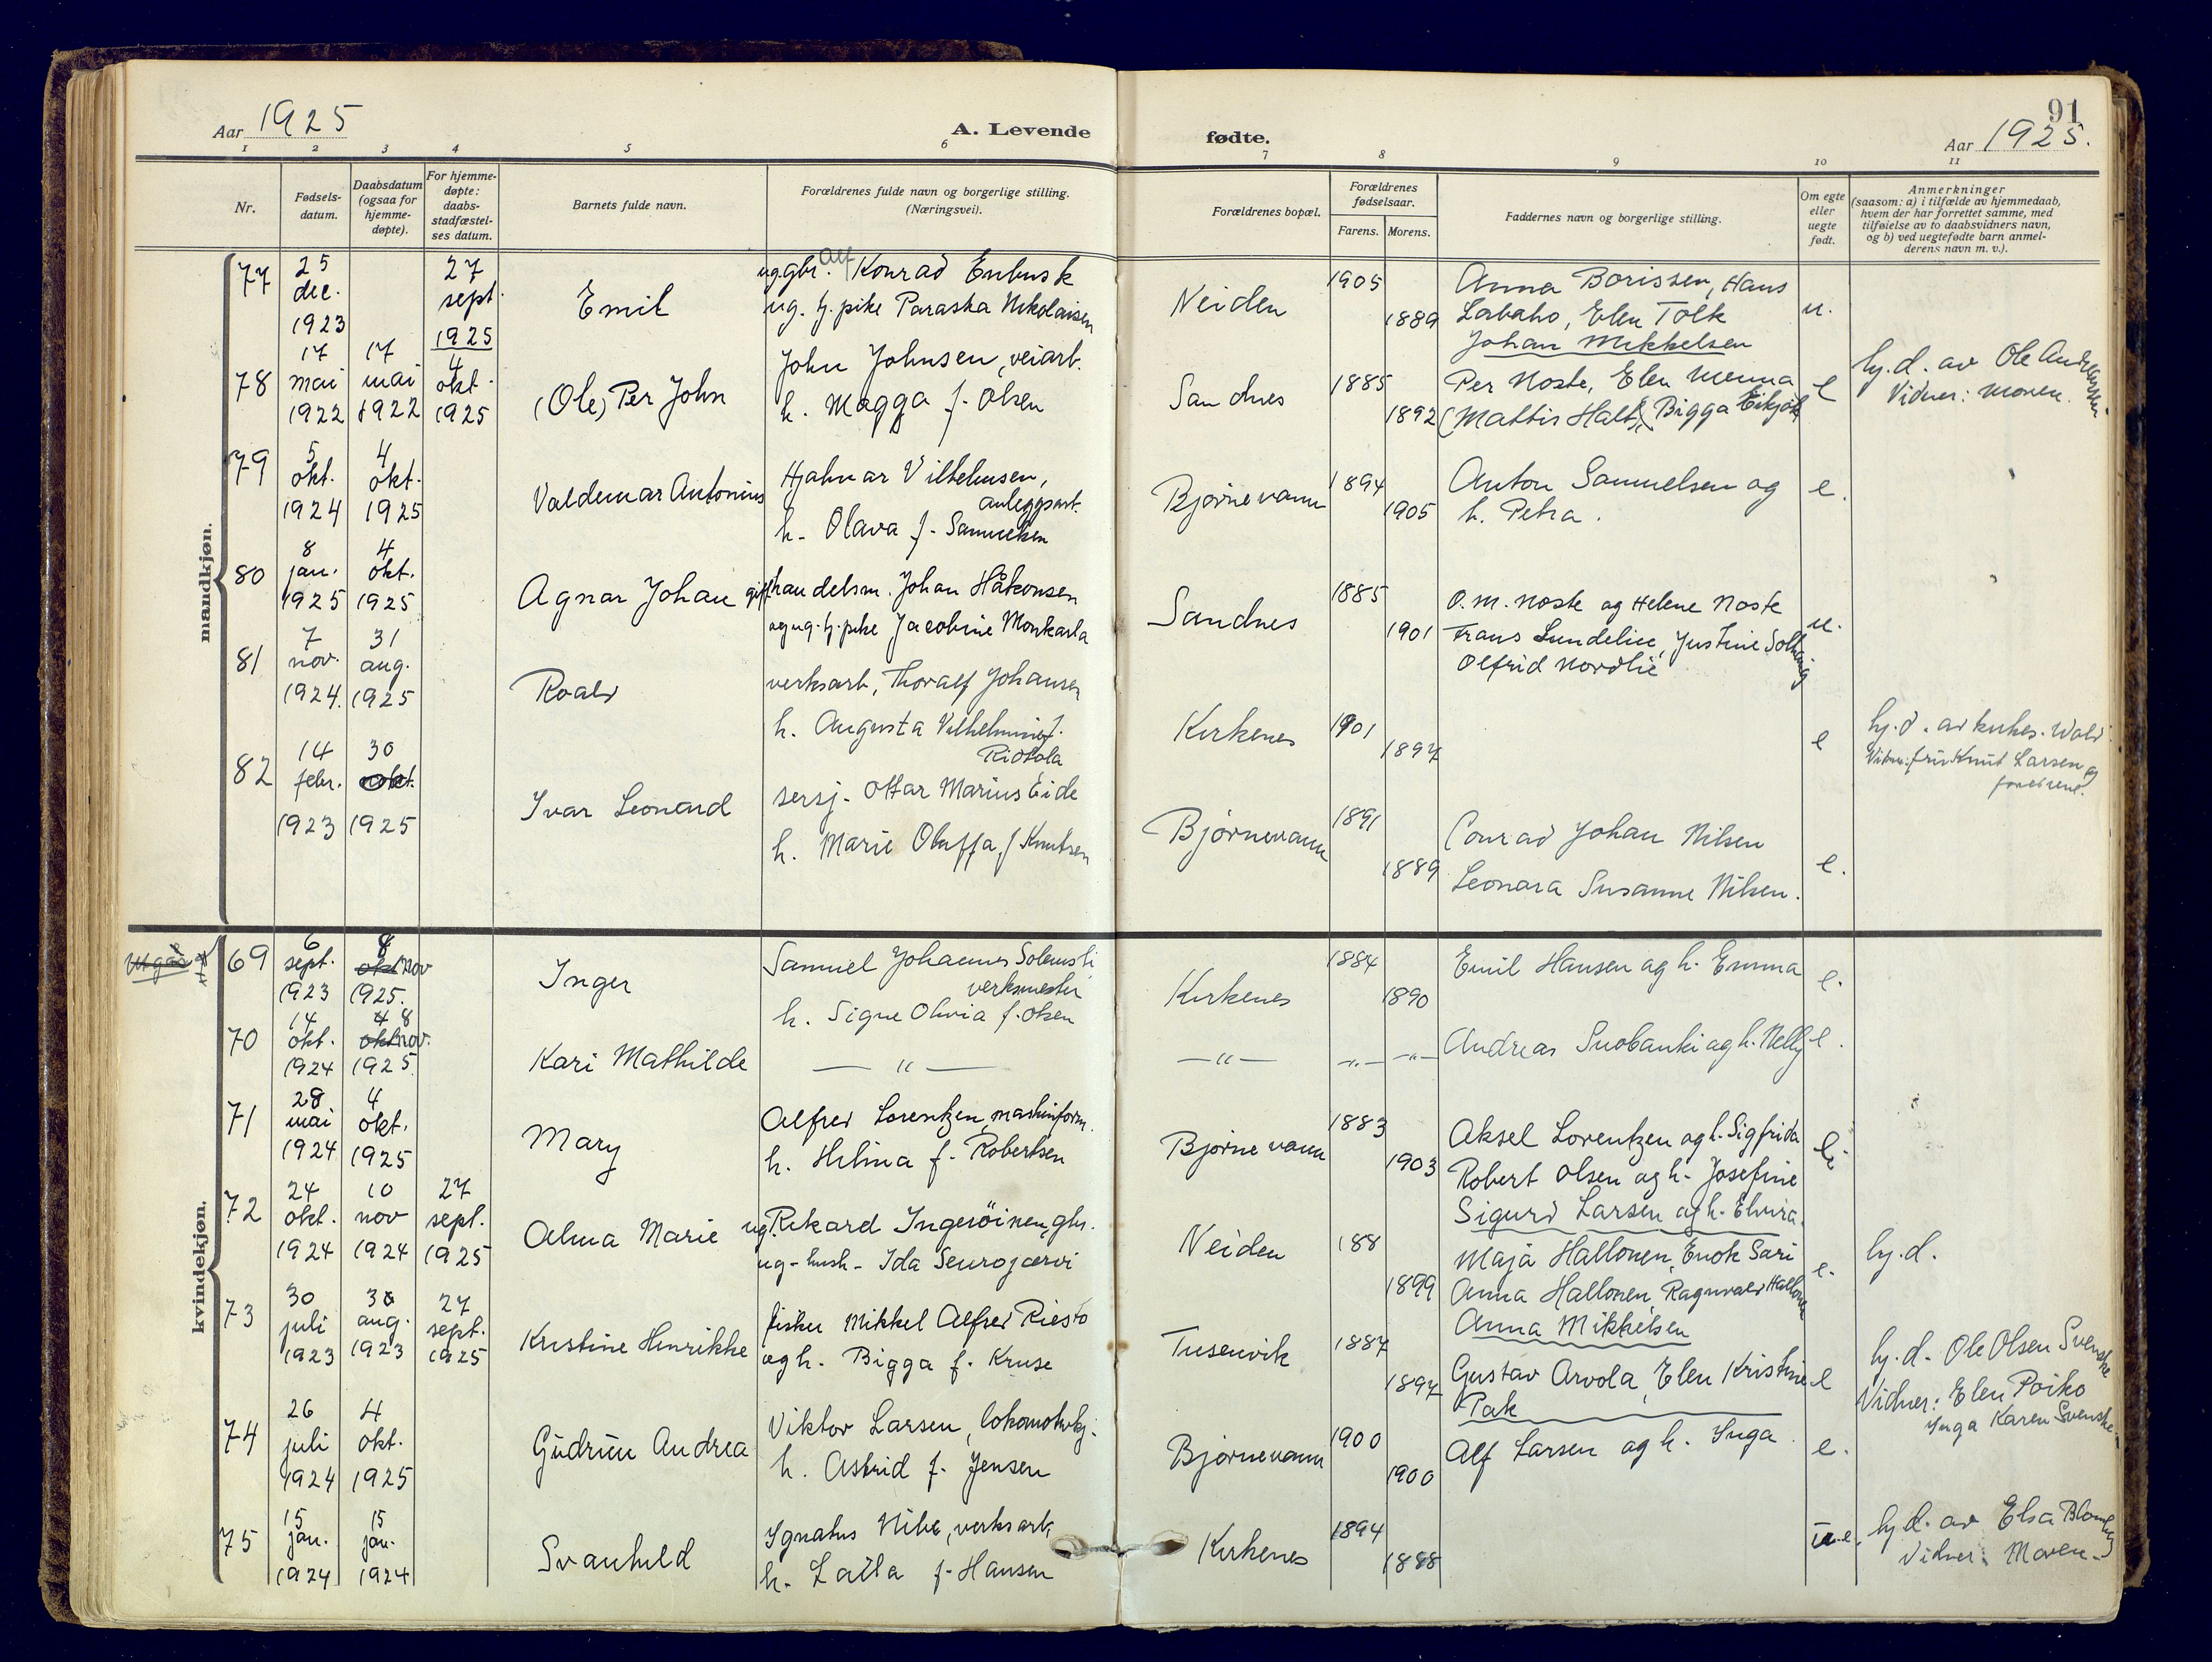 Aar 1925
A. Levende fødte.
91
Aar 1925.
1 2 3 4 5 6 7 8 9 10 11
Nr.
Fødsels-
datum.
Daabsdatum
(ogsaa for
hjemme-
døpte).
For hjemme-
døpte:
daabs-
stadfæstel-
ses datum.
Barnets fulde navn.
Forældrenes fulde navn og borgerlige stilling.
(Næringsvei).
Forældrenes bopæl.
Forældrenes
fødselsaar.
Farens. Morens.
Faddernes navn og borgerlige stilling.
Om egte
eller
uegte
født.
Anmerkninger
(saasom: a) i tilfælde av hjemmedaab,
hvem der har forrettet samme, med
tilføielse av to daabsvidners navn,
og b) ved uegtefødte barn anmel-
derens navn m. v.).
mandkjøn.
77
25
dec.
1923
27
sept.
1925
Emil
ug. gbr. Alf Konrad Enbusk
ug. hj. pike Paraska Nikolaisen
Neiden
1905
1889
Anna Borissen, Hans
Labaho, Elen Tolk
Johan Mikkelsen
u.
78
17
mai
1922
17
mai
1922
4
okt.
1925
(Ole) Per John
John Johnsen, veiarb.
h. Magga f. Olsen
Sandnes
1885
1892
Per Noste, Elen Menna
(Mattis Halt), Bigga
e
hj. d. av Ole Andreassen
Vidner: moren.
79
5
okt.
1924
4
okt.
1925
Valdemar Antonius
Hjalmar Vilhelmsen,
anleggsarb.
h. Olava f. Samuelsen
Bjørnevann
1894
1905
Anton Samuelsen og
h. Petra.
e.
80
8
jan.
1925
4
okt.
1925
Agnar Johan
gift handelsm. Johan Håkonsen
og ug. hj. pike Jacobine Monkarla
Sandnes
1885
1901
O. M. Noste og Helene Noste
Frans Lundelie, Justine
Olfrid Nordlie
u.
81
7
nov.
1924.
31
aug.
1925
Roald
verksarb, Thoralf Johansen
h. Augusta Vilhelmine f.
Ridtola
Kirkenes
1901
1897
e
hj. d. av kirkes. Wold
Vidn: fru Knut Larsen og
foreldrene.
82
14
febr.
1923
30
1925
Ivar Leonard
sersj. Ottar Marius Eide
h. Marie Oluffa f Knutsen
Bjørnevann
1891
1889
Conrad Johan Nilsen
Leonara Susanne Nilsen.
e.
kvindekjøn.
69
6
sept.
1923
8
okt nov
1925.
Inger
Samuel Johannes Solemsli
verksmester
h. Signe Olivia f. Olsen
Kirkenes
1884
1890
Emil Hansen og h. Emma
e.
70
14
okt.
1924
4 8
okt nov.
1925.
Kari Mathilde
— " —
— " —
— " — — " —
Andreas Suobanki og h. Nelly
e.
71
28
mai
1924
4
okt.
1925
Mary
Alfred Lorentzen, maskinform.
h. Hilma f. Robertsen
Bjørnevann
1883
1903
Aksel Lorentzen og h. Sigfrida
Robert Olsen og h. Josefine
Sigurd Larsen og h. Elvira.
e.
72
24
okt.
1924
10
nov
1924
27
sept.
1925
Alma Marie
ug. Rikard Ingeröinen, gbr.
ug - hush - Ida Seurojærvi
Neiden
188
1899
Maja Hallonen, Enok Sari
Anna Hallonen, Ragnvald Hallonen
Anna Mikkelsen
e.
hj. d.
73
30
juli
1923
30
aug.
1923
27
sept.
1925
Kristine Henrikke
fisker Mikkel Alfred Riesto
og h. Bigga f. Kruse
Tusenvik
1887
1897
Gustav Arvola, Elen Kristine
Pak
e
hj. d. Ole Olsen Svenske
Vidner: Elen Poiko
Inga Karen Svenske.
74
26
juli
1924
4
okt.
1925
Gudrun Andrea
Viktor Larsen, lokomotivkj.
h. Astrid f. Jensen
Bjørnevann
1900
1900
Alf Larsen og h. Inga.
e.
75
15
jan.
1924
15
jan.
1924
Svanhild
Ignatus Nibe, verksarb,
h. Laila f. Hansen
Kirkenes
1894
1888
e.
hj. d. av Elsa
Vidner: Moren.